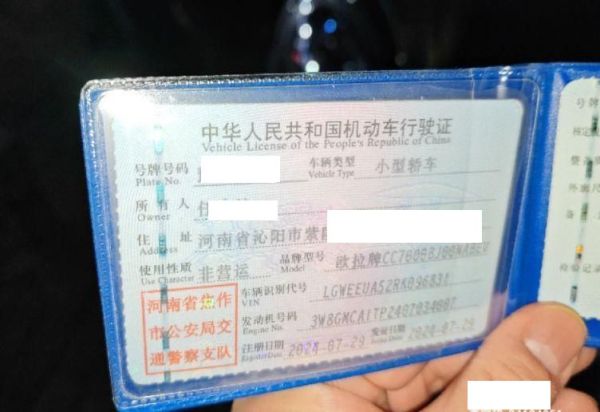 中华人民共和国机动车行驶证
Vehicle License of the People's Republic of China
号牌号码 车辆类型 小型轿车
Plate No. Vehicle Type
所有人
Owner
住址 河南省沁阳市紫
Address
使用性质 非营运 品牌型号 欧拉牌
Use Character Model
河南省焦作
市公安局交
通警察支队
车辆识别代号
VIN
发动机号码
Engine No.
注册日期 2024-07-29 发证日期 2024-07-29
Register Date Issue Date
号牌